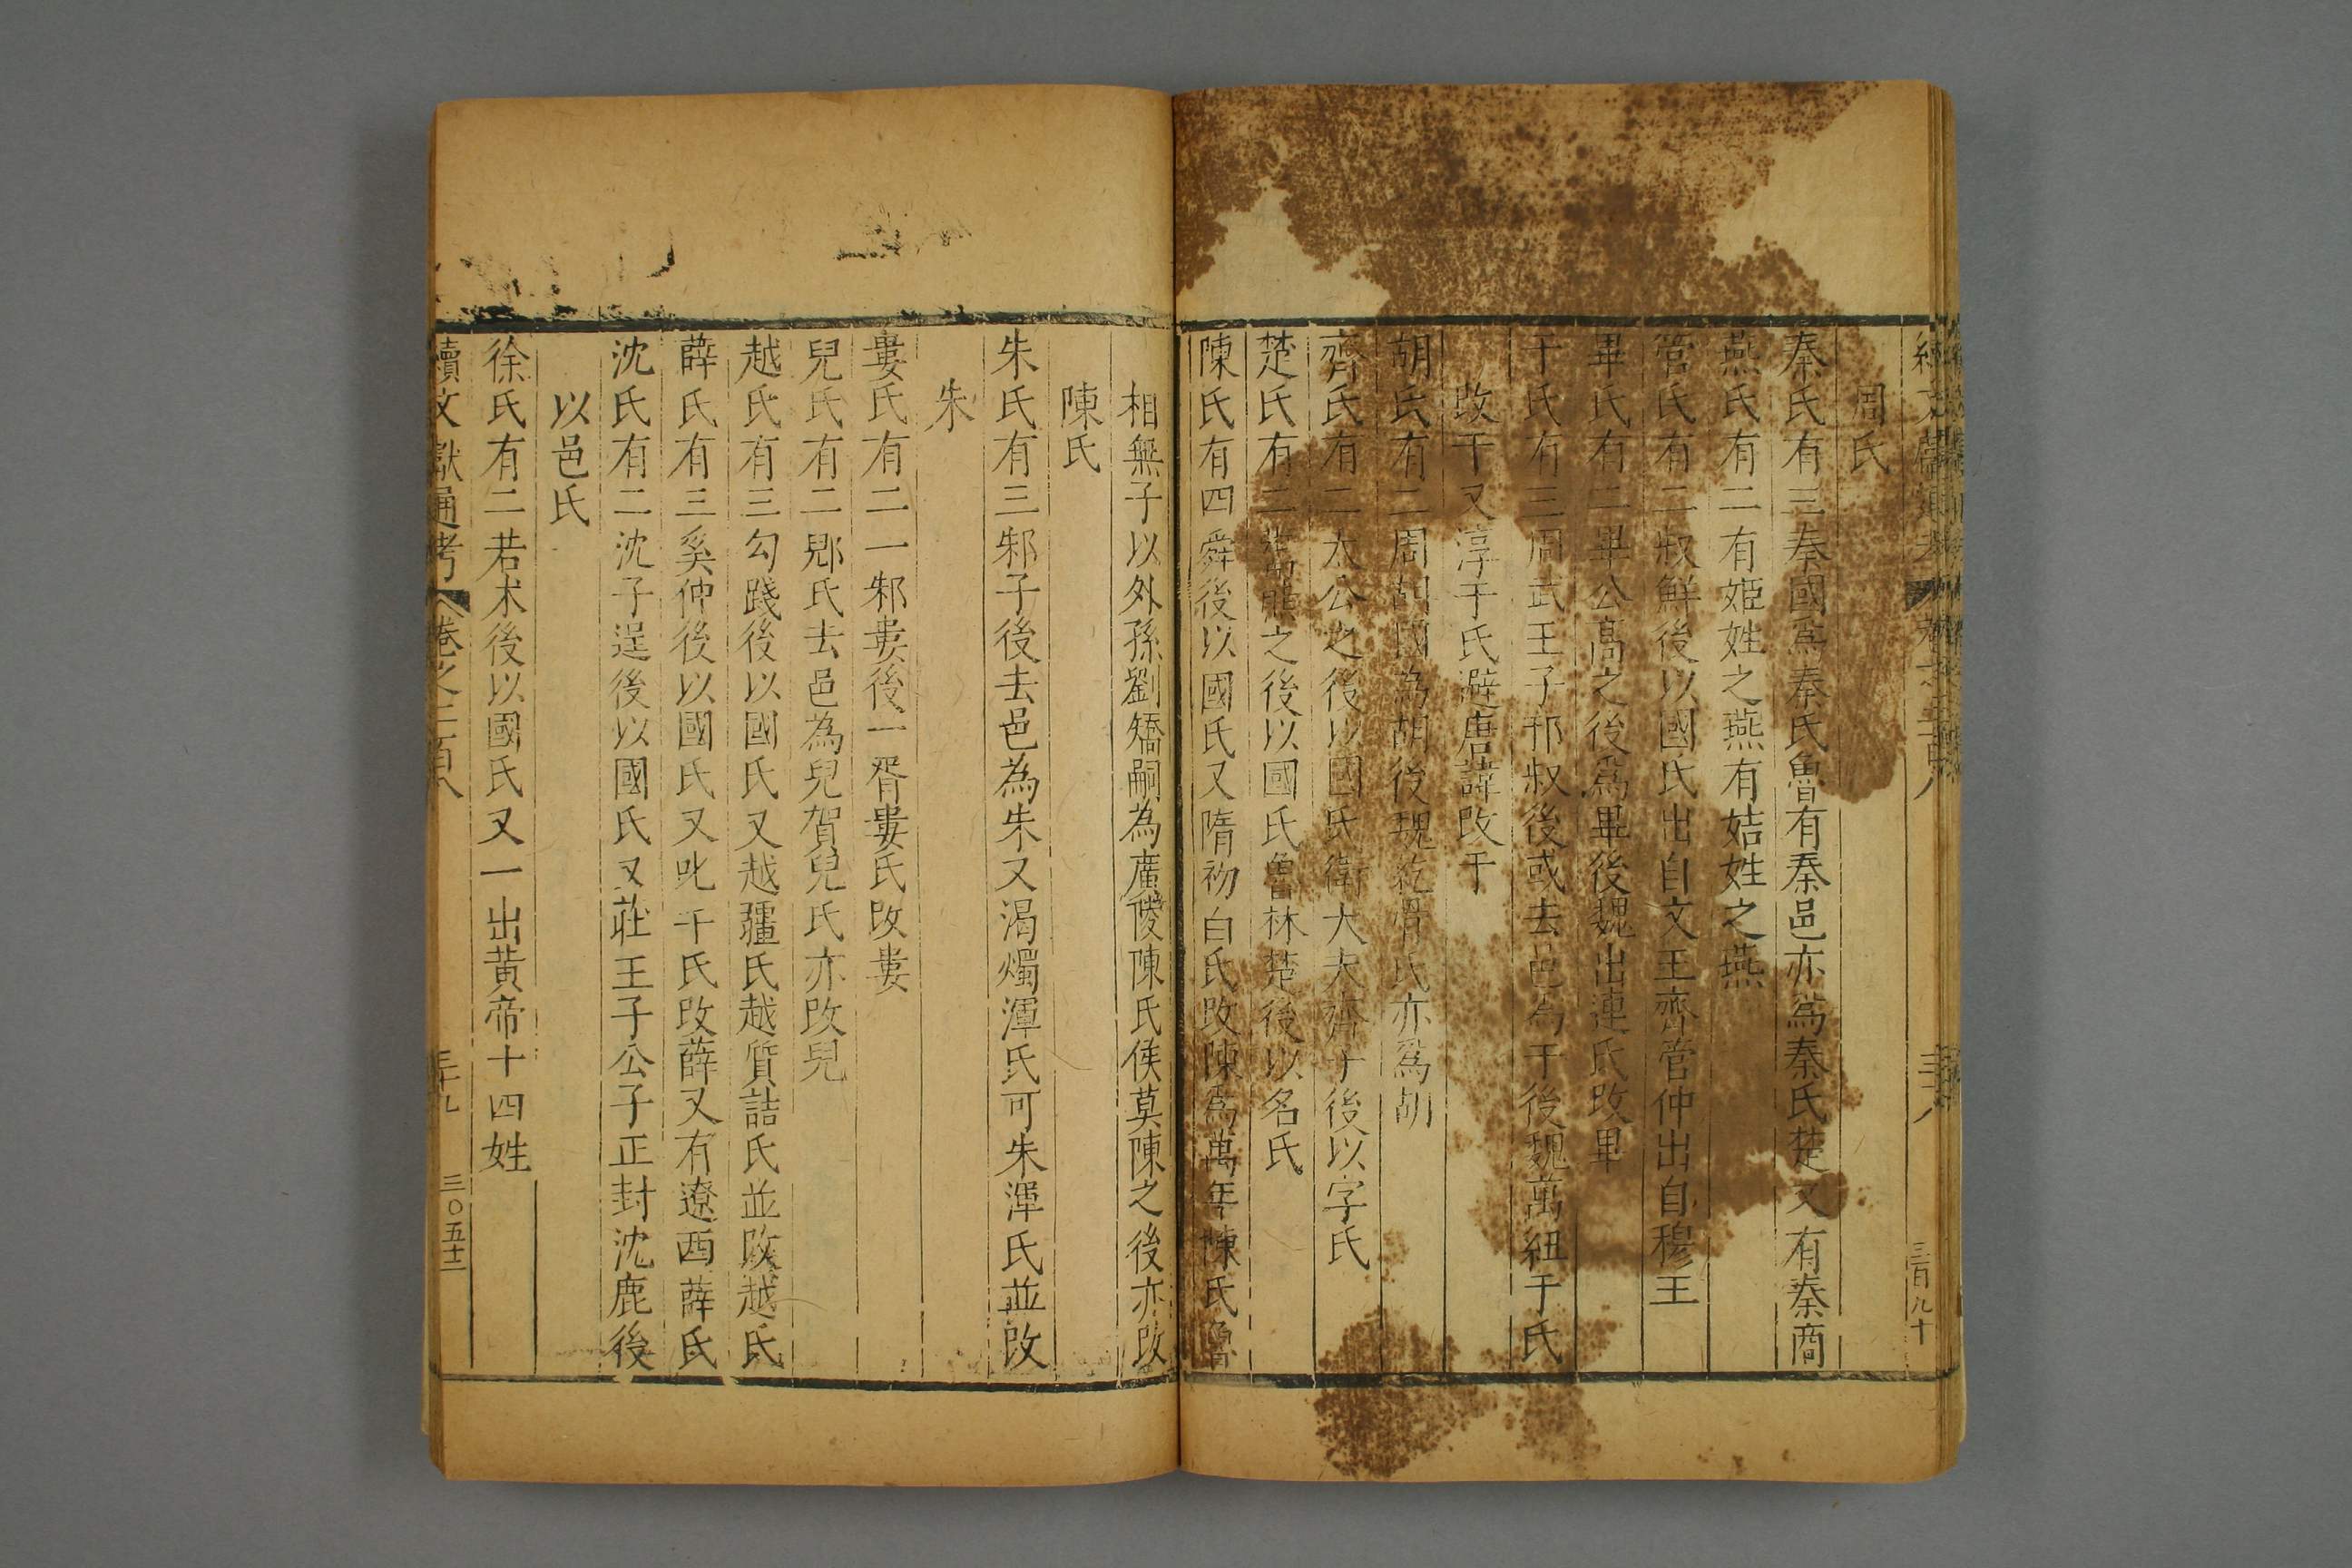 周氏
秦氏有三秦國爲秦氏魯有秦邑亦爲秦氏楚又有秦商
燕氏有二有姬姓之燕有姞姓之燕
管氏有二叔鮮後以國氏出自文王齊管仲出自穆王
畢氏有二畢公高之後爲畢後魏出連氏改畢
于氏有三周武王子邘叔後或去邑為于後魏萬紐于氏
改于又淳于氏避唐諱改于
胡氏有二周胡國為胡後魏紇骨氏亦爲胡
齊氏有二太公之後以國氏衛大夫齊子後以字氏
楚氏有二鬻熊之後以國氏魯林楚後以名氏
陳氏有四舜後以國氏又隋初白氏改陳爲萬年陳氏魯
相無子以外孫劉矯嗣為廣陵陳氏侯莫陳之後亦改
陳氏
朱氏有三邾子後去邑為朱又渴燭渾氏可朱渾氏並改
朱
婁氏有二一邾婁後一胥婁氏改婁
兒氏有二郳氏去邑為兒賀兒氏亦改兒
越氏有三勾踐後以國氏又越疆氏越質詰氏並改越氏
薛氏有三奚仲後以國氏又叱干氏改薛又有遼西薛氏
沈氏有二沈子逞後以國氏又莊王子公子正封沈鹿後
以邑氏
徐氏有二若木後以國氏又一出黃帝十四姓
續文獻通考 卷之二百八 三十九 三〇五十二